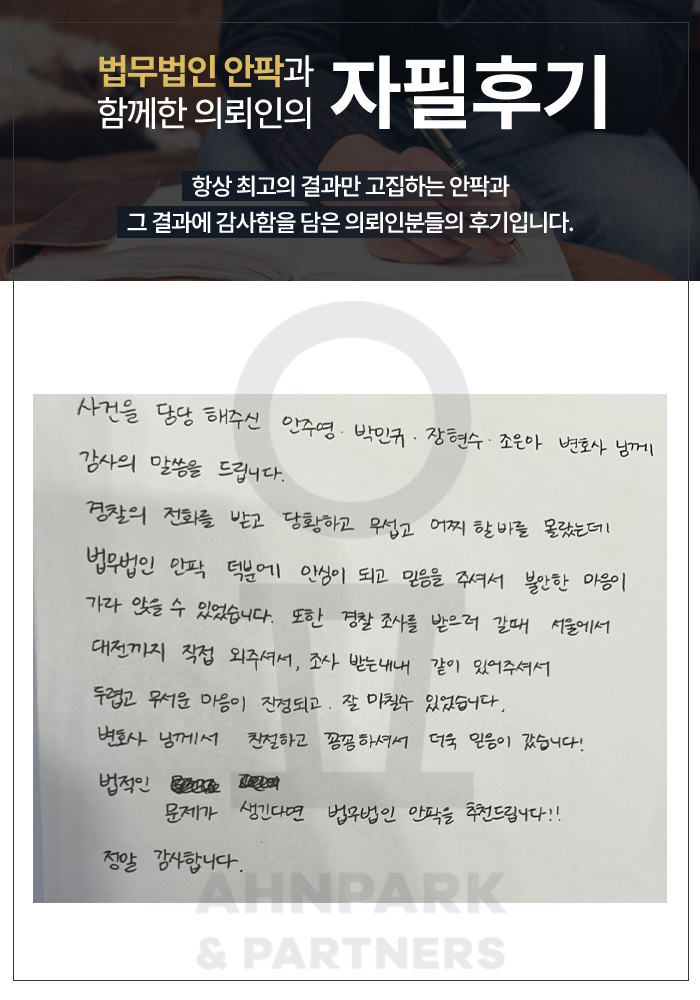 법무법인 안팍과
함께한 의뢰인의
자필후기
항상 최고의 결과만 고집하는 안팍과
그 결과에 감사함을 담은 의뢰인분들의 후기입니다.
사건을 담당 해주신 안주영·박민규·장현수·조은아 변호사 님께
감사의 말씀을 드립니다.
경찰의 전화를 받고 당황하고 무섭고 어찌 할 바를 몰랐는데
법무법인 안팍 덕분에 안심이 되고 믿음을 주셔서 불안한 마음이
가라 앉을 수 있었습니다. 또한 경찰 조사를 받으러 갈때 서울에서
대전까지 직접 와주셔서, 조사 받는내내 같이 있어주셔서
두렵고 무서운 마음이 진정되고. 잘 마칠수 있었습니다.
변호사 님께서 친절하고 꼼꼼하셔서 더욱 믿음이 갔습니다!
법적인
문제가 생긴다면 법무법인 안팍을 추천드립니다!!
정말 감사합니다.
AHNPARK
& PARTNERS